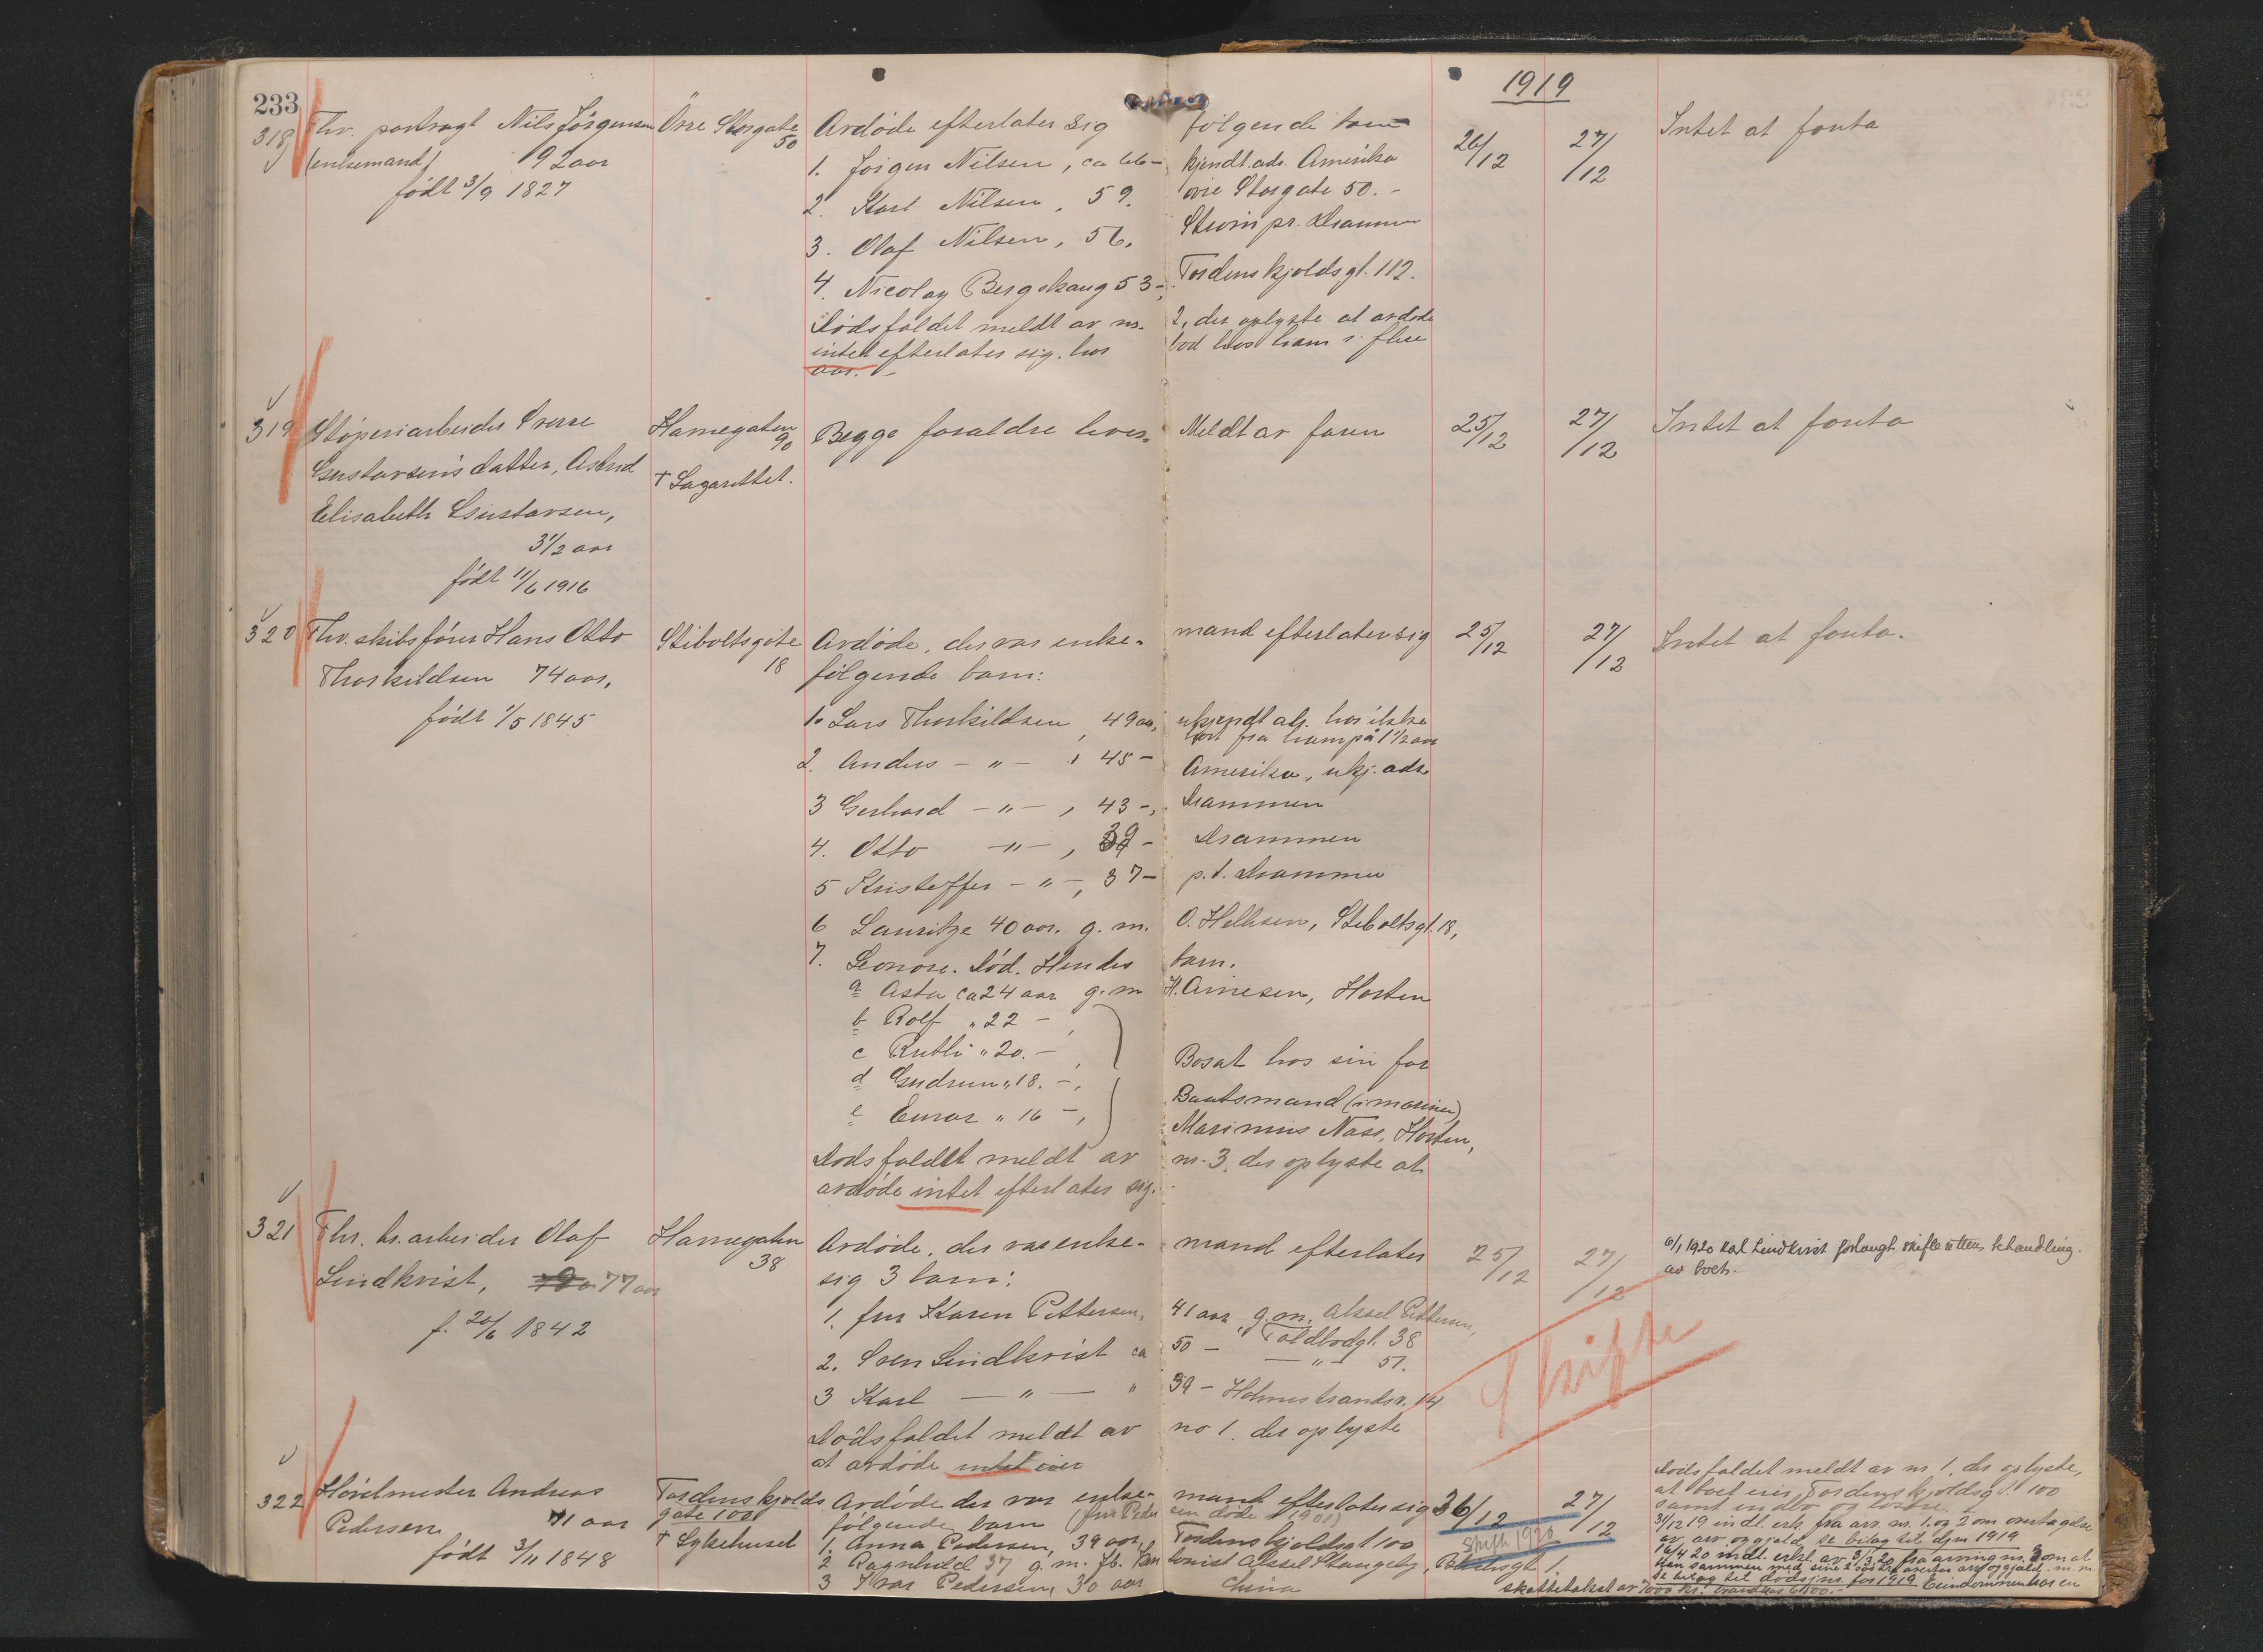 233
1919
318 Fhv. portvagt Nils Jörgensen
(enkemand) 92 aar
født 3/9 1827
Övre Storgate
50
Avdøde efterlater sig følgende barn
1. Jörgen Nilsen, ca 66 - kjendt. adr. Amerika
2. Karl Nilsen, 59. övre Storgate 50. -
3. Olaf Nilsen, 56. Skoger pr. Drammen
4. Nicolay Bergskaug 53 - Tordenskjoldsgt. 112.
Dödsfaldet meldt av nr. 2, der oplyste at avdøde
intet efterlater sig. har bod hos ham i flere
aar. -
26/12
27/12
Intet at foreta
319 Støperiarbeider Sverre
Gustavsen's datter, Astrid
Elisabeth Gustavsen,
3 1/2 aar
født 11/6 1916
Havnegaten
90
† Lazarettet.
Begge forældre lever. Meldt av faren
25/12
27/12
Intet at foreta
320 Fhv. skibsfører Hans Otto
Thorkildsen 74 aar,
født 1/5 1845
Stiboltsgate
18
Avdøde, der var enke- mand efterlater sig
følgende barn:
1. Lars Thorkildsen, 49 aar, ukjendt adr. har ikke
hørt fra ham på 1 1/2 aar
2. Anders - " - , 45 - Amerika, ukj. adr.
3 Gerhard - " - , 43 -, Drammen
4. Otto - " - , 39 - Drammen
5 Kristoffer - " -, 37 - p.t. Drammen
6 Lauritze 40 aar. g. m. O. Helhsen, Stiboltsgt. 18,
7. Leonore. Død. Hendes barn.
a Asta, ca 24 aar g. m H. Arnesen, Horten
b Rolf " 22 -
c Ruth " 20. -
d Gudrun " 18. -,
e Einar " 16 -,
Bosat hos sin far
Baatsmand (i marinen)
Marinius Næss, Horten,
Dødsfaldet meldt av nr. 3, der oplyste at
avdøde intet efterlater sig.
25/12
27/12
Intet at foreta.
321 Fhv. br. arbeider Olaf
Lindkvist, 77 aar
f. 20/6 1842
Havnegaten
38
Avdøde, der var enke- mand efterlater
sig 3 barn:
1. fru Karen Pettersen, 41 aar, g. m. Aksel Pettersen,
Toldbodgt. 38
2. Sven Lindkvist ca 50 - - " - 51.
3 Karl - " - " 39 - Holmestrandsv. 14
Dødsfaldet meldt av no 1, der oplyste
at avdøde intet eier
25/12
27/12
6/1 1920 Karl Lindkvist forlangt skifterettens behandling
av boet.
Skifte
322 Hövelmester Andreas
Pedersen 71 aar
født 3/11 1848
Tordenskjolds
gate 100
† Sykehuset
Avdøde der var enke- mand efterlater sig
følgende barn (fru Peder sen døde i 1901)
1. Anna Pedersen, 39 aar, Tordenskjoldsgt 100
2 Ragnhild 37 g. m. fb. Kan torist Aksel Stangeby,
3 Ivar Pedersen, 30 aar China
26/12
27/12
Skift 1920
Dødsfaldet meldt av nr 1, der oplyste,
at boet eier Tordenskjoldsgt. 100
samt indbo og løsøre
31/12 19 indl. erk. fra arv. nr. 1. og 2 om overtagelse
av arv og gjæld se bilag til dsjn 1919
16/4 20 indl. erkl. av 3/3 20 fra arving nr. 3 om at
han sammen med sine 2 søstre overtar arv og gjæld, m. m.
se bilag til dødsjnr. for 1919 Eiendommen har en
skattetakst av